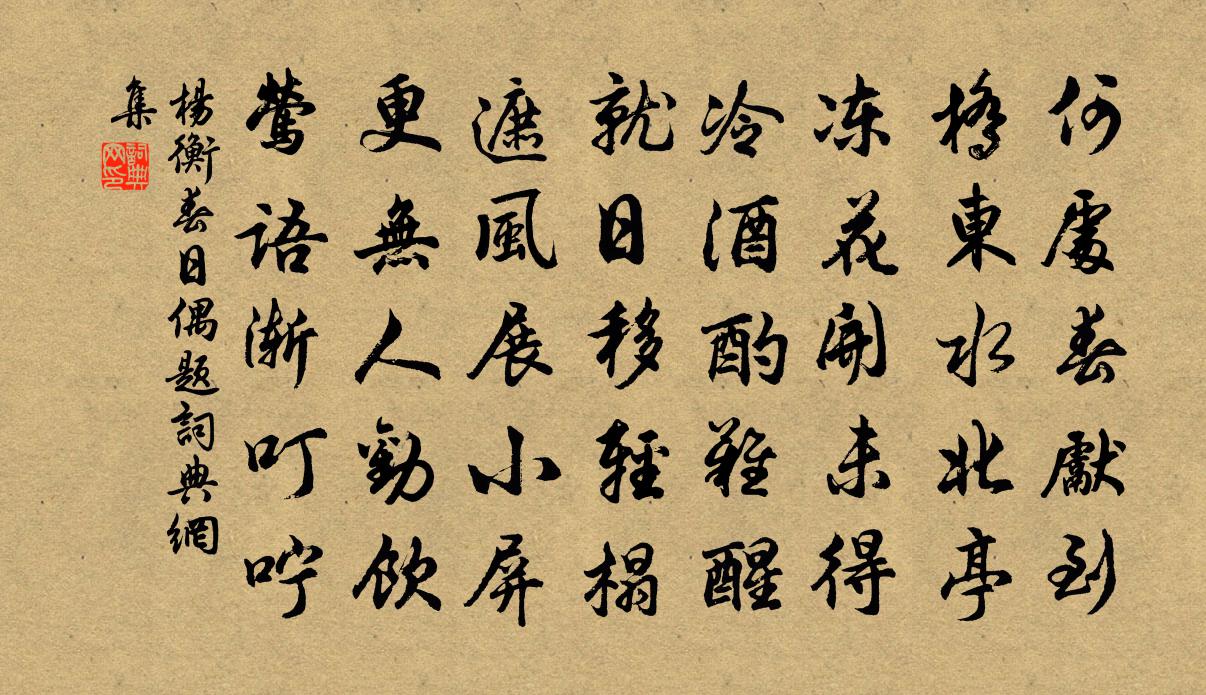 何處春獻到
橋東水北亭
凍花開未得
冷酒酌難醒
就日移輕榻
遮風展小屏
更無人勸飲
鶯語漸叮咛
楊衡春日偶題詞典網
集
詞典網印